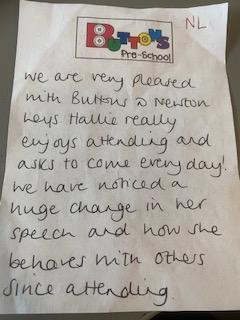 NL
BUTTONS
Pre-School
we are very pleased
with Buttons @ Newton
leys Hallie really
enjoys attending and
asks to come everyday!
we have noticed a
huge change in her
speech and how she
behaves with others
since attending.